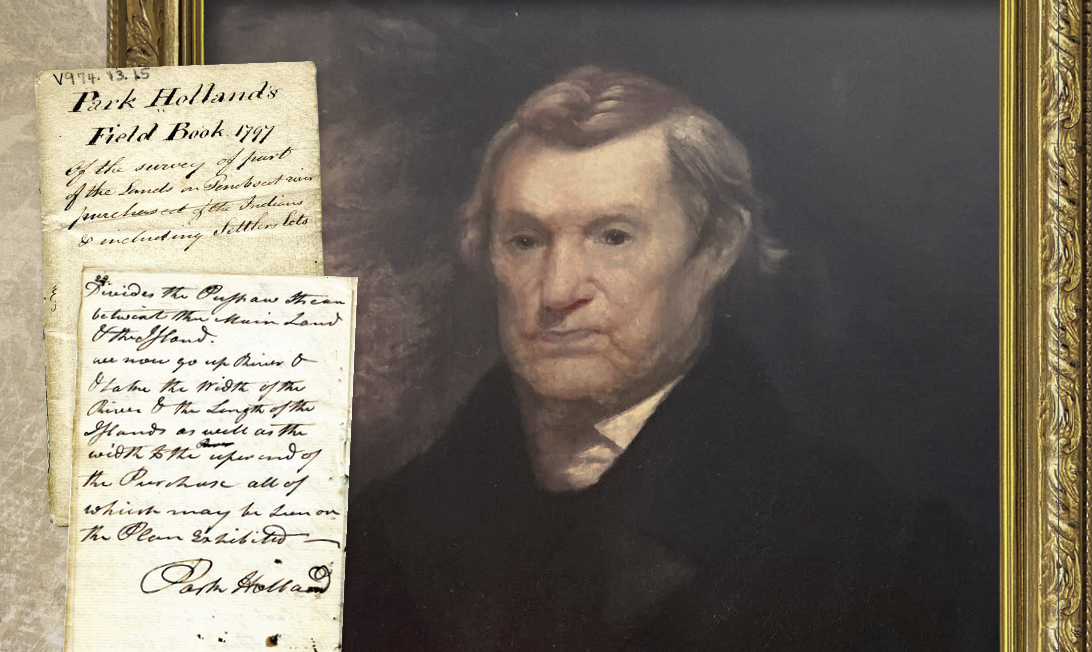 V974.13.15
Park Holland's
Field Book 1797
Of the survey of part
of the Lands on Penobscot river
purchased of the Indians
& including Settlers lots
22
Divides the Pushaw Stream
betwixt the Main Land
& the Island.
we now go up River &
take the Width of the
River & the Length of the
Islands as well as the
width to the uper end of
the Purchase all of
which may be seen on
the Plan Exhibited —
Park Holland